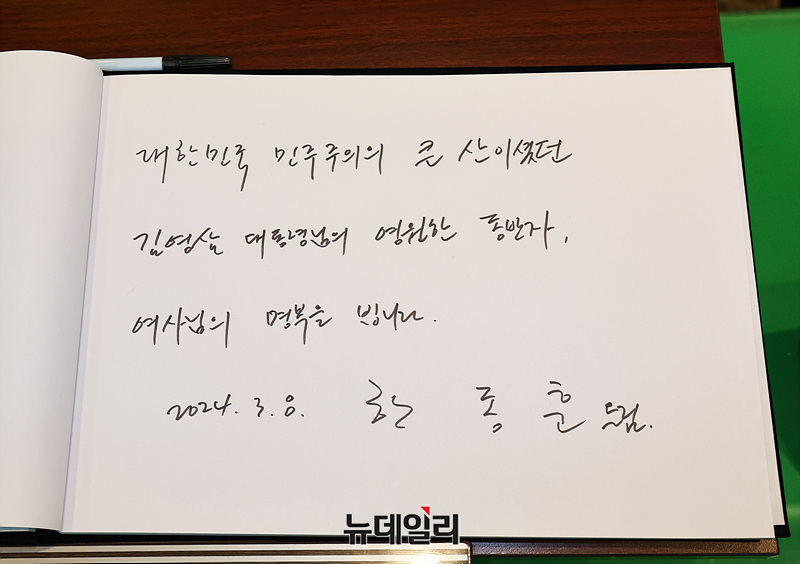 대한민국 민주주의의 큰 산이셨던
김영삼 대통령님의 영원한 동반자,
여사님의 명복을 빕니다.
2024. 3. 8. 한 동 훈 드림.
뉴데일리